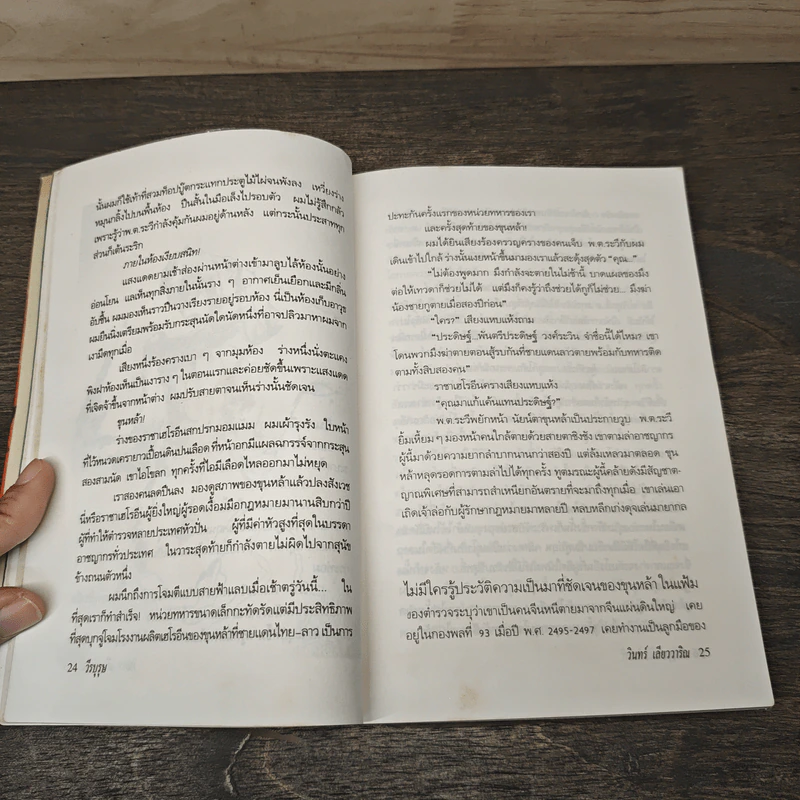 นั้นผมก็ใช้เท้าที่สวมท็อปบู๊ตกระแทกประตูไม้ไผ่จนพังลง เหวี่ยงร่าง
หมุนกลิ้งไปบนพื้นห้อง ปืนสั้นในมือเล็งไปรอบตัว ผมไม่รู้สึกกลัว
เพราะรู้ว่าพ.ต.ระวีกำลังคุ้มกันผมอยู่ด้านหลัง แต่กระนั้นประสาททุก
ส่วนก็เต้นระริก
ภายในห้องเงียบสนิท!
แสงแดดยามเช้าส่องผ่านหน้าต่างเข้ามาลูบไล้ห้องนั้นอย่าง
อ่อนโยน แลเห็นทุกสิ่งภายในนั้นราง ๆ อากาศเย็นเยือกและมีกลิ่น
อับชื้น ผมมองเห็นราวปืนวางเรียงรายอยู่รอบห้อง นี่เป็นห้องเก็บอาวุธ
ผมยืนนิ่งเตรียมพร้อมรับกระสุนนัดใดนัดหนึ่งที่อาจปลิวมาหาผมจาก
เงามืดทุกเมื่อ
เสียงหนึ่งร้องครางเบา ๆ จากมุมห้อง ร่างหนึ่งนั่งตะแคง
พิงฝาห้องเห็นเป็นเงาราง ๆ ในตอนแรกและค่อยชัดขึ้นเพราะแสงแดด
ที่เจิดจ้าขึ้นจากหน้าต่าง ผมปรับสายตาจนเห็นร่างนั้นชัดเจน
ขุนหล้า!
ร่างของราชาเฮโรอีนสกปรกมอมแมม ผมเผ้ารุงรัง ใบหน้า
ที่ไว้หนวดเครายาวเปื้อนดินปนเลือด ที่หน้าอกมีแผลฉกรรจ์จากกระสุน
สองสามนัด เขาไอโขลก ทุกครั้งที่ไอมีเลือดไหลออกมาไม่หยุด
เราสองคนลดปืนลง มองดูสภาพของขุนหล้าแล้วปลงสังเวช
นี่หรือราชาเฮโรอีนผู้ยิ่งใหญ่ผู้รอดเงื้อมมือกฎหมายมานานสิบกว่าปี
ผู้ที่ทำให้ตำรวจหลายประเทศหัวปั่น ผู้ที่มีค่าหัวสูงที่สุดในบรรดา
อาชญากรทั่วประเทศ ในวาระสุดท้ายก็กำลังตายไม่ผิดไปจากสุนัข
ข้างถนนตัวหนึ่ง
ผมนึกถึงการโจมตีแบบสายฟ้าแลบเมื่อเช้าตรู่วันนี้... ใน
ที่สุดเราก็ทำสำเร็จ! หน่วยทหารขนาดเล็กกะทัดรัดแต่มีประสิทธิภาพ
ที่สุดบุกจู่โจมโรงงานผลิตเฮโรอีนของขุนหล้าที่ชายแดนไทย-ลาว เป็นการ
24 วีรบุรุษ
ปะทะกันครั้งแรกของหน่วยทหารของเรา
และครั้งสุดท้ายของขุนหล้า!
ผมได้ยินเสียงร้องครวญครางของคนเจ็บ พ.ต.ระวีกับผม
เดินเข้าไปใกล้ ร่างนั้นเงยหน้าขึ้นมามองเราแล้วสะดุ้งสุดตัว "คุณ..."
"ไม่ต้องพูดมาก มึงกำลังจะตายในไม่ช้านี้ บาดแผลของมึง
ต่อให้เทวดาก็ช่วยไม่ได้ แต่มึงก็คงรู้ว่าถึงช่วยได้กูก็ไม่ช่วย... มึงฆ่า
น้องชายกูตายเมื่อสองปีก่อน"
"ใคร?" เสียงแหบแห้งถาม
"ประดิษฐ์...พันตรีประดิษฐ์ วงศ์ระวิน จำชื่อนี้ได้ไหม? เขา
โดนพวกมึงฆ่าตายตอนสู้รบกันที่ชายแดนลาวตายพร้อมกับทหารติด
ตามทั้งสิบสองคน"
ราชาเฮโรอีนครางเสียงแหบแห้ง
"คุณมาแก้แค้นแทนประดิษฐ์?"
พ.ต.ระวีพยักหน้า นัยน์ตาขุนหล้าเป็นประกายวูบ พ.ต.ระวี
ยิ้มเหี้ยม ๆ มองหน้าคนใกล้ตายด้วยสายตาชิงชัง เขาตามล่าอาชญากร
ผู้นี้มาด้วยความยากลำบากนานกว่าสองปี แต่ล้มเหลวมาตลอด ขุน
หล้าหลุดรอดการตามล่าไปได้ทุกครั้ง ทูตมรณะผู้นี้คล้ายดังมีสัญชาต-
ญาณพิเศษที่สามารถสำเหนียกอันตรายที่จะมาถึงทุกเมื่อ เขาเล่นเอา
เถิดเจ้าล่อกับผู้รักษากฎหมายมาหลายปี หลบหลีกเก่งดุจเล่นมายากล
ไม่มีใครรู้ประวัติความเป็นมาที่ชัดเจนของขุนหล้า ในแฟ้ม
ของตำรวจระบุว่าเขาเป็นคนจีนหนีตายมาจากจีนแผ่นดินใหญ่ เคย
อยู่ในกองพลที่ 93 เมื่อปี พ.ศ. 2495-2497 เคยทำงานเป็นลูกมือของ
วินทร์ เลียววาริณ 25